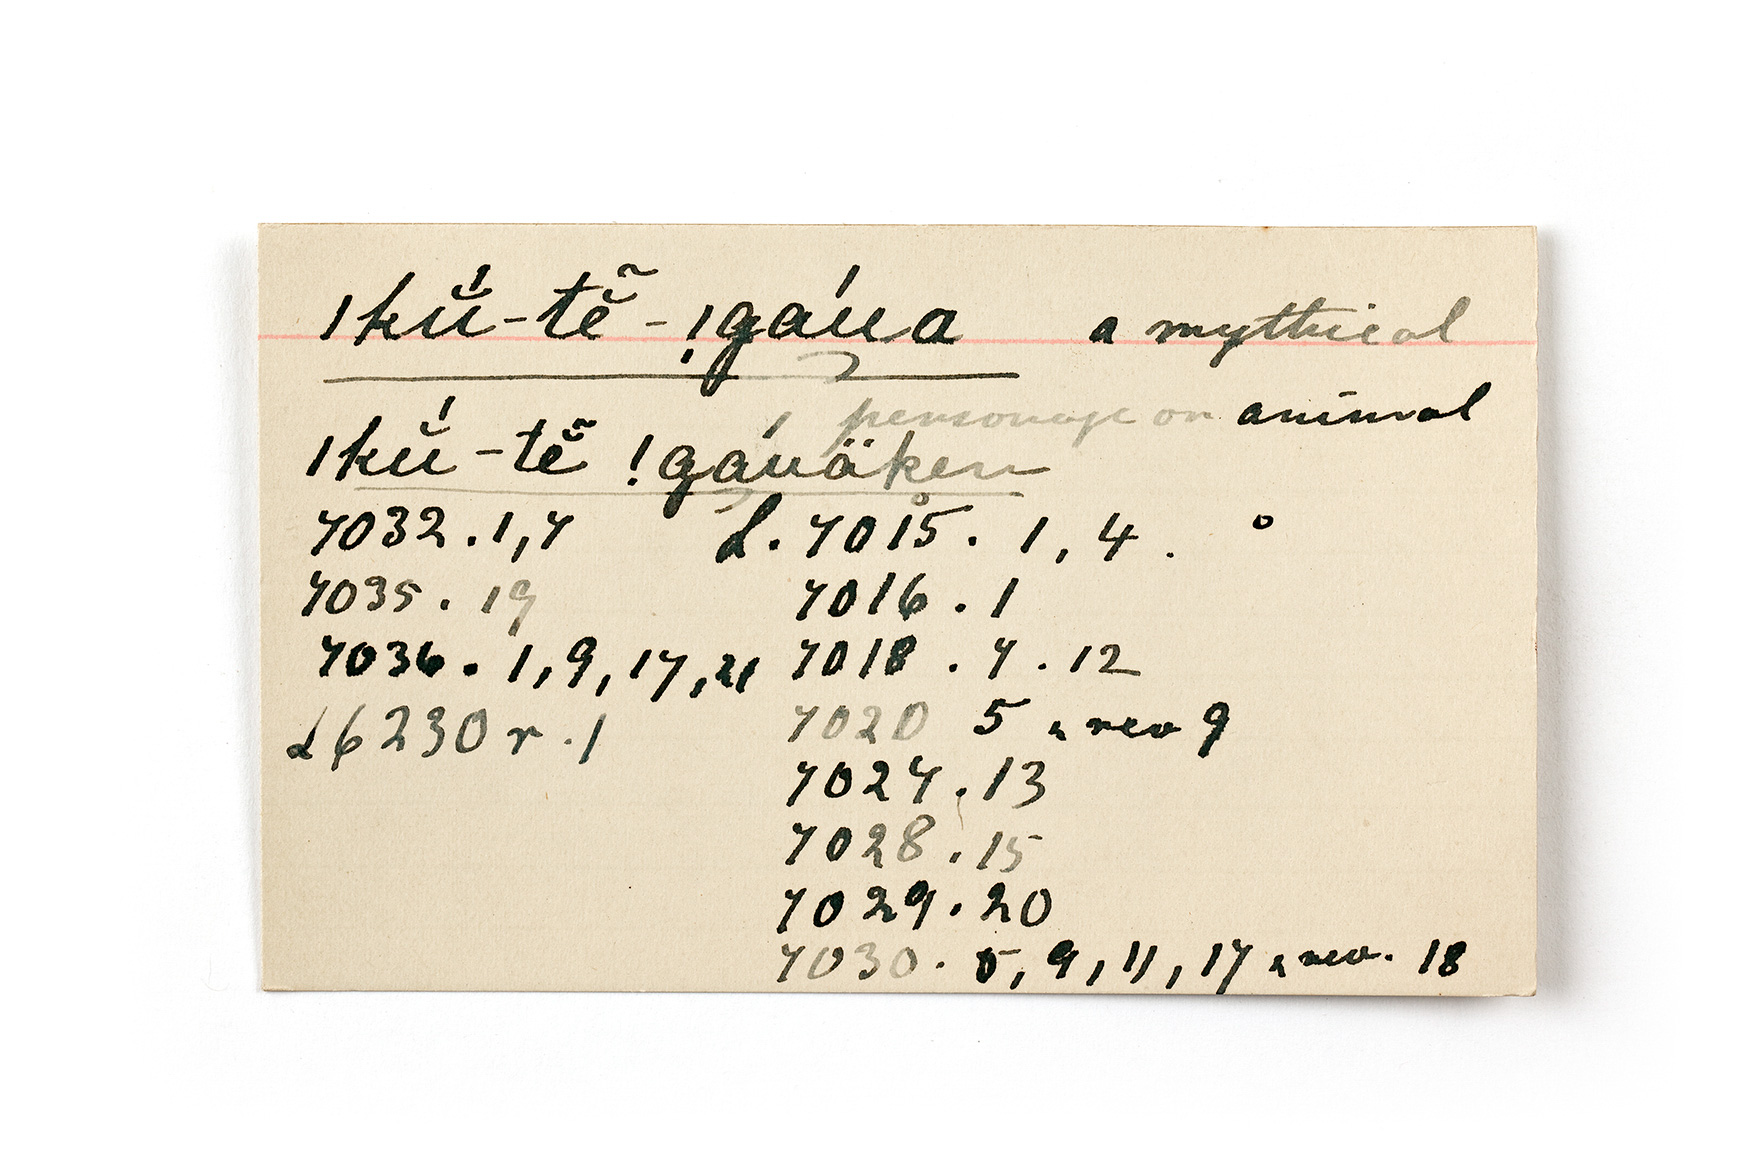 ǀkŭ́-tẽ̆-!gáu̯a a mythical
personage or animal
ǀkŭ́-tẽ̆ !gáu̯äken
7032.1,7 L. 7015. 1, 4.
7035. 19 7016. 1
7036. 1, 9, 17, 21 7018. 7. 12
L6230 r. 1 7020 5 & rev 9
7027. 13
7028. 15
7029. 20
7030. 5, 9, 11, 17 & rev. 18